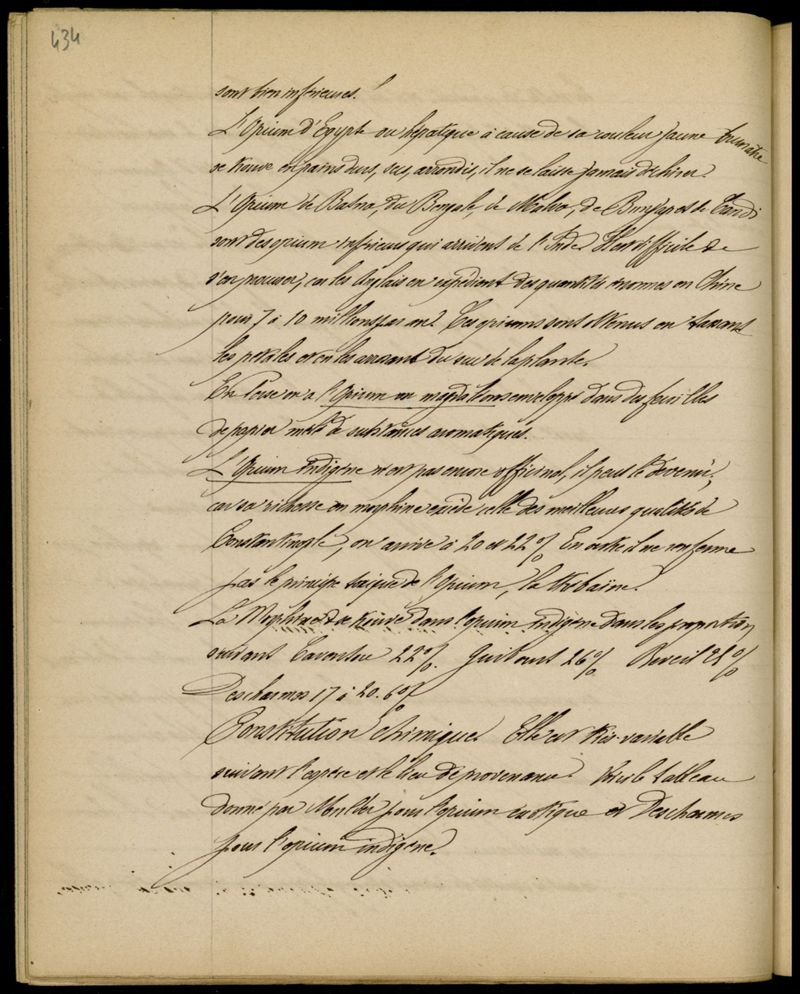 434
sont bien inférieures.
L'Opium d'Egypte ou hépatique à cause de sa couleur jaune brunâtre
se trouve en pains durs, secs, arrondis, il ne se laisse jamais déchirer.
L'Opium de Patna, du Bengale, de Malwa, de et de
sont des opium inférieurs qui arrivent de l'Inde. Il est difficile de
s'en procurer, car les Anglais en expédient des quantités énormes en Chine
pour 7 à 10 millions par an. Ces opiums sont obtenus en
les pétales et en les arrosant du suc de la plante.
En Perse on a l'Opium en magdaléons enveloppé dans des feuilles
de papier mêlé de substances aromatiques.
L'Opium indigène n'est pas encore officinal, il peut le devenir,
car sa richesse en morphine excède celle des meilleures qualités de
Constantinople, on arrive à 20 et 22 %. En outre il ne renferme
pas le principe toxique de l'Opium, la thébaïne.
La Morphine se trouve dans l'opium indigène dans les proportions
suivant Caventou 22 %. Guibourt 26 % Reveil %
Descharmes 17 à 20.6 %
Constitution chimique. Elle est très variable
suivant l'espèce et le lieu de provenance. Voir le tableau
donné par Mulder pour l'opium exotique et Descharmes
pour l'opium indigène.